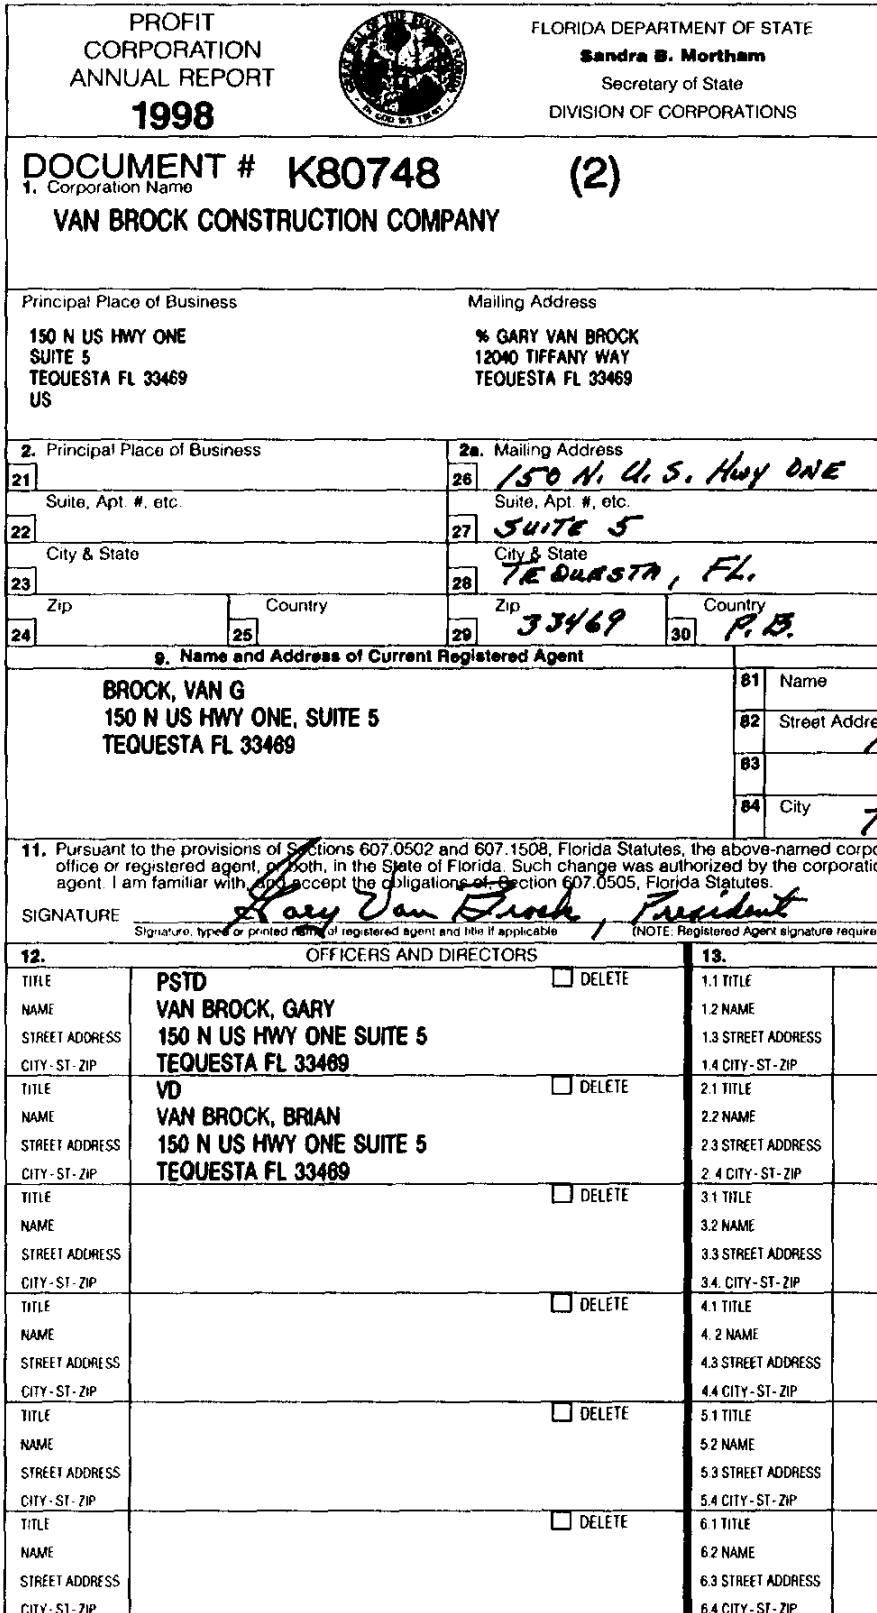 PROFIT
CORPORATION
ANNUAL REPORT
1998
GREAT SEAL OF THE STATE OF FLORIDA
IN GOD WE TRUST
FLORIDA DEPARTMENT OF STATE
Sandra B. Mortham
Secretary of State
DIVISION OF CORPORATIONS
DOCUMENT # K80748 (2)
1. Corporation Name
VAN BROCK CONSTRUCTION COMPANY
Principal Place of Business
150 N US HWY ONE
SUITE 5
TEQUESTA FL 33469
US
Mailing Address
% GARY VAN BROCK
12040 TIFFANY WAY
TEQUESTA FL 33469
2. Principal Place of Business
21
Suite, Apt. #, etc.
22
City & State
23
Zip
24
Country
25
2a. Mailing Address
26 150 N. U.S. Hwy ONE
Suite, Apt. #, etc.
27 SUITE 5
City & State
28 TEQUESTA, FL.
Zip
29 33469
Country
30 P.B.
9. Name and Address of Current Registered Agent
BROCK, VAN G
150 N US HWY ONE, SUITE 5
TEQUESTA FL 33469
81 Name
82 Street Addre
83
84 City
11. Pursuant to the provisions of Sections 607.0502 and 607.1508, Florida Statutes, the above-named corpo
office or registered agent, or both, in the State of Florida. Such change was authorized by the corporatio
agent. I am familiar with, and accept the obligations of, Section 607.0505, Florida Statutes.
SIGNATURE Gary Van Brock, President
Signature, typed or printed name of registered agent and title if applicable (NOTE: Registered Agent signature require
12. OFFICERS AND DIRECTORS 13.
TITLE PSTD DELETE 1.1 TITLE
NAME VAN BROCK, GARY 1.2 NAME
STREET ADDRESS 150 N US HWY ONE SUITE 5 1.3 STREET ADDRESS
CITY-ST-ZIP TEQUESTA FL 33469 1.4 CITY-ST-ZIP
TITLE VD DELETE 2.1 TITLE
NAME VAN BROCK, BRIAN 2.2 NAME
STREET ADDRESS 150 N US HWY ONE SUITE 5 2.3 STREET ADDRESS
CITY-ST-ZIP TEQUESTA FL 33469 2.4 CITY-ST-ZIP
TITLE DELETE 3.1 TITLE
NAME 3.2 NAME
STREET ADDRESS 3.3 STREET ADDRESS
CITY-ST-ZIP 3.4. CITY-ST-ZIP
TITLE DELETE 4.1 TITLE
NAME 4.2 NAME
STREET ADDRESS 4.3 STREET ADDRESS
CITY-ST-ZIP 4.4 CITY-ST-ZIP
TITLE DELETE 5.1 TITLE
NAME 5.2 NAME
STREET ADDRESS 5.3 STREET ADDRESS
CITY-ST-ZIP 5.4 CITY-ST-ZIP
TITLE DELETE 6.1 TITLE
NAME 6.2 NAME
STREET ADDRESS 6.3 STREET ADDRESS
CITY-ST-ZIP 6.4 CITY-ST-ZIP